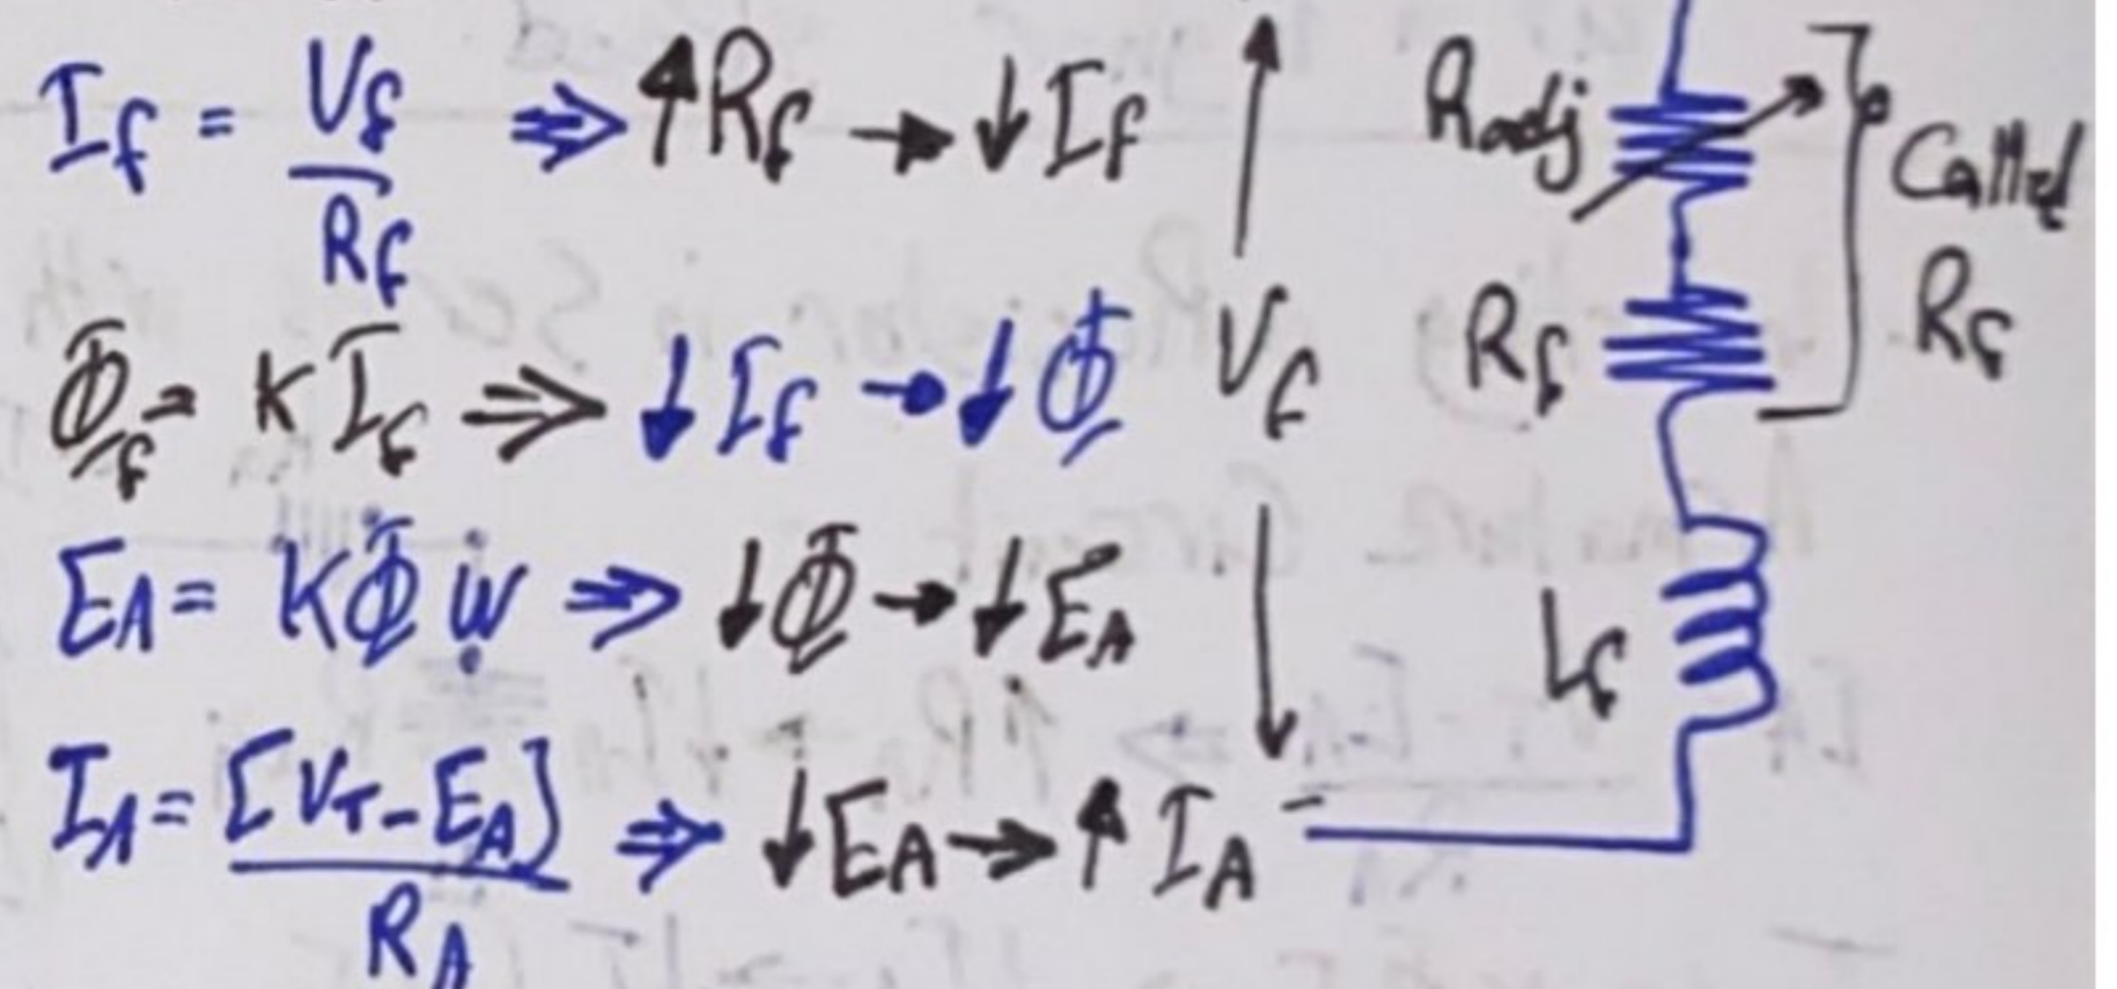 I_f = V_f / R_f ⇒ ↑R_f → ↓I_f
Φ_f = K I_f ⇒ ↓I_f → ↓Φ
E_A = KΦω ⇒ ↓Φ → ↓E_A
I_A = [V_T - E_A] / R_A ⇒ ↓E_A → ↑I_A
V_f
-
R_adj
R_f
L_f
Called
R_f